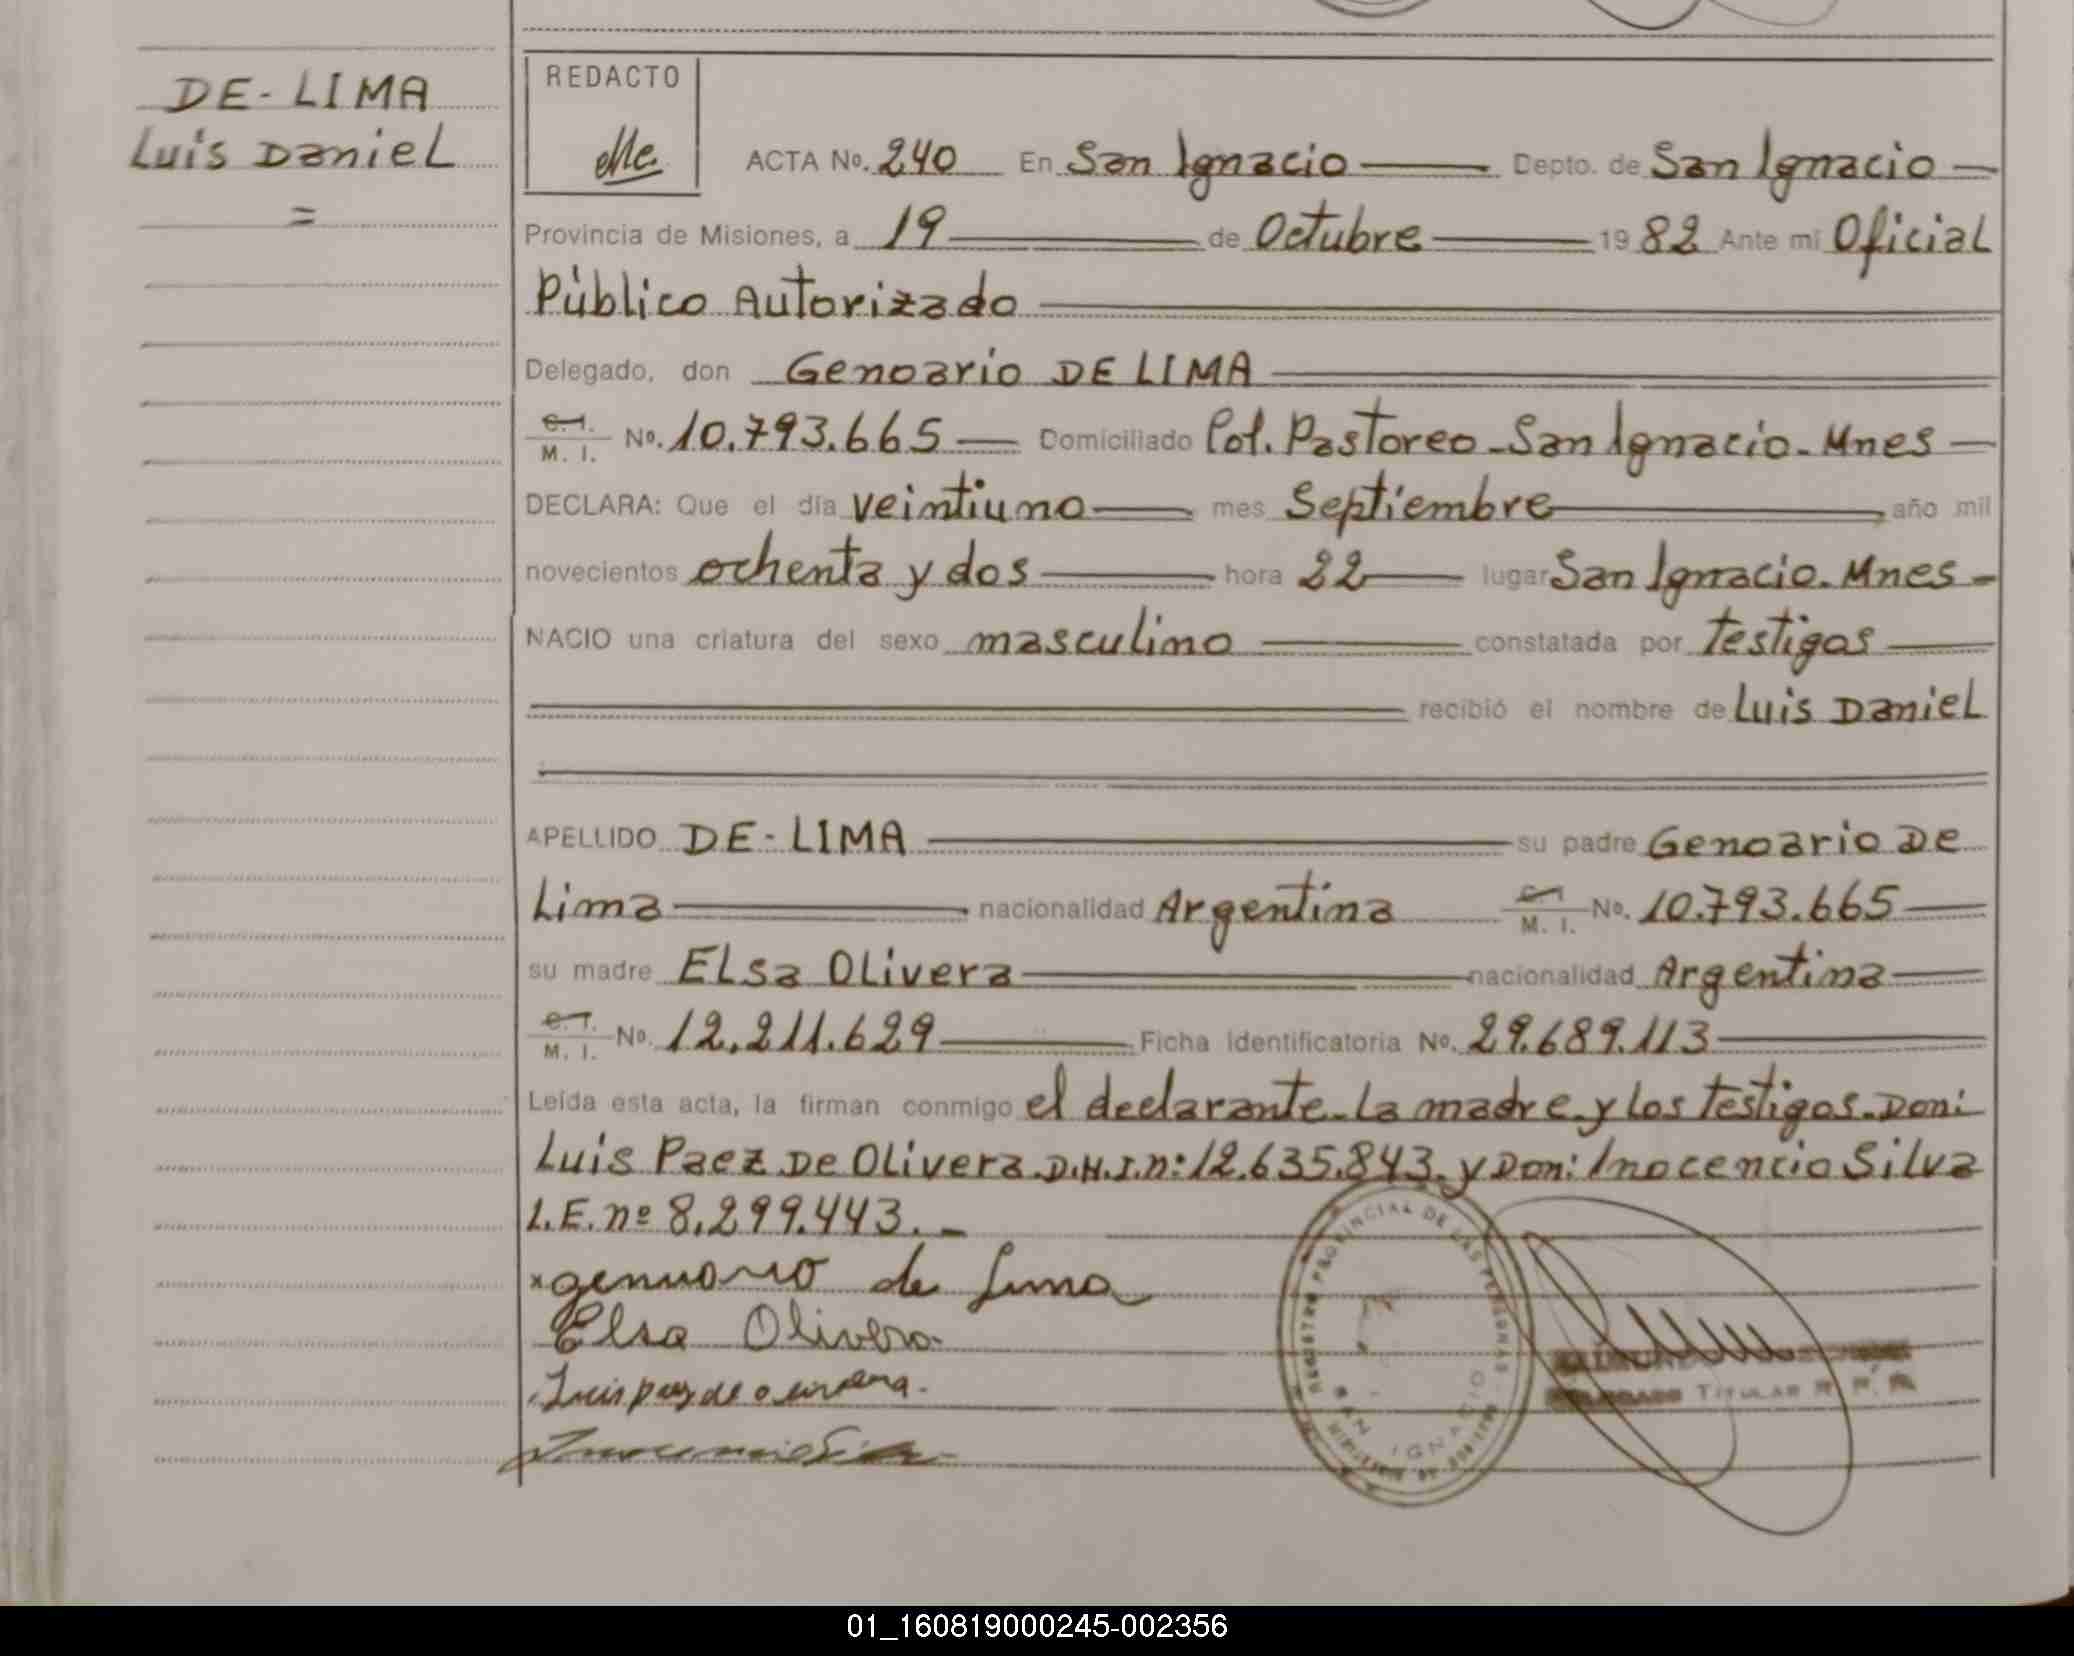 DE-LIMA
Luis Daniel
=
REDACTO
ACTA No. 240 En San Ignacio Depto. de San Ignacio
Provincia de Misiones, a 19 de Octubre 1982 Ante mi Oficial
Público Autorizado
Delegado, don Genoario DE LIMA
C.I. M. I. No. 10.793.665 Domiciliado Col. Pastoreo - San Ignacio - Mnes
DECLARA: Que el día veintiuno mes Septiembre año mil
novecientos ochenta y dos hora 22 lugar San Ignacio. Mnes -
NACIO una criatura del sexo masculino constatada por testigos
recibió el nombre de Luis Daniel
APELLIDO DE-LIMA su padre Genoario De
Lima nacionalidad Argentina C.I. M. I. No. 10.793.665
su madre Elsa Olivera nacionalidad Argentina
C.I. M. I. No. 12.211.629 Ficha identificatoria No. 29.689.113
Leída esta acta, la firman conmigo el declarante - La madre y los Testigos - Don:
Luis Paez De Olivera. D.N.I. n: 12.635.843. y Don: Inocencio Silva
L.E. nº 8.299.443. -
x genuario de Lima
Elsa Olivera
Luis paez de olivera.
REGISTRO PROVINCIAL DE LAS PERSONAS
SAN IGNACIO
DELEGADO TITULAR R. P. P.
01_160819000245-002356